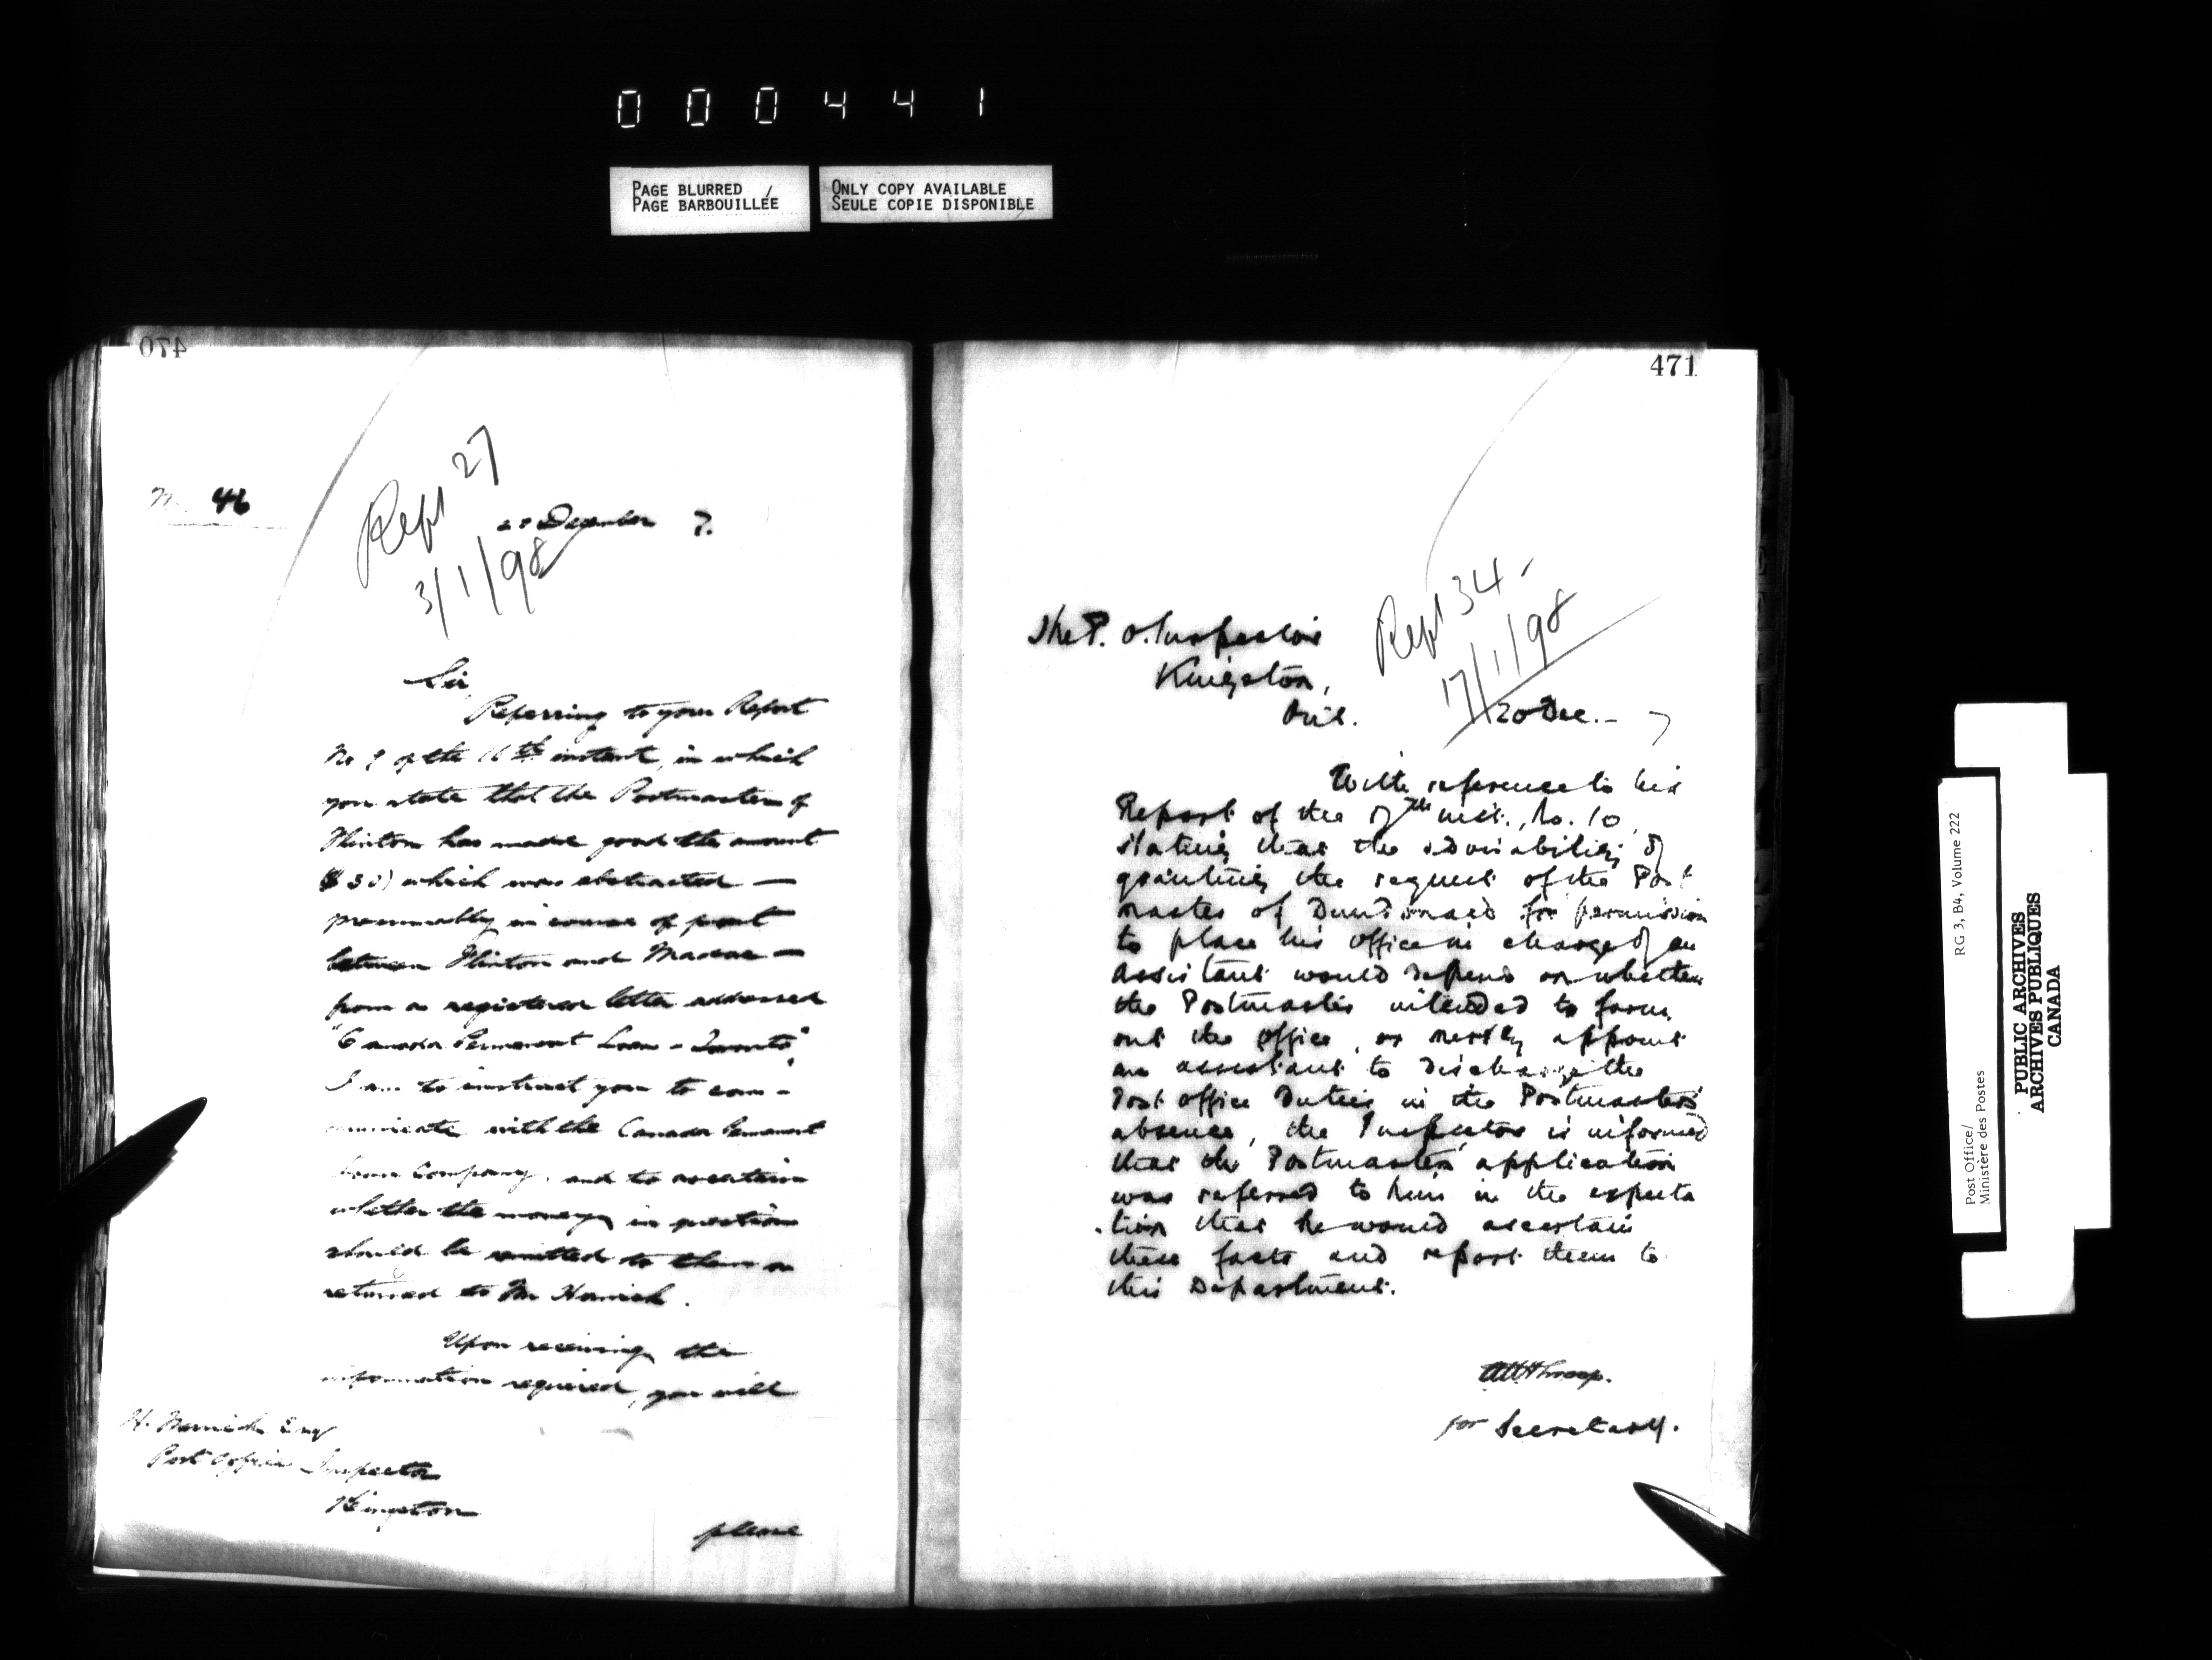 000441
PAGE BLURRED
PAGE BARBOUILLÉE
ONLY COPY AVAILABLE
SEULE COPIE DISPONIBLE
470
No. 46
Rept 27
3/1/98
December 7.
Sir,
Referring to your Report
No 9 of the 16th instant, in which
you state that the Postmaster of
Flinton has made good the amount
$30) which was abstracted —
presumably in course of post
between Flinton and Madoc —
from a registered letter addressed
"Canada Permanent Loan - Toronto",
I am to instruct you to com-
municate with the Canada Permanent
Loan Company, and to ascertain
whether the money in question
should be remitted to them or
returned to Mr
Upon receiving the
information required, you will
H. Merrick Esq
Post Office Inspector
Kingston
please
471
The P. O. Inspector
Kingston,
Ont.
Rept 34 -
17/1/98
20 Dec. - 7
With reference to his
Report of the 17th inst., No. 10,
stating that the advisability of
granting the request of the Post
master of Dundonald for permission
to place his office in charge of an
assistant would depend on whether
the Postmaster intended to farm
out the office, or merely appoint
an assistant to discharge the
Post office duties in the Postmaster's
absence, the Inspector is informed
that the Postmaster's application
was referred to him in the expecta
-tion that he would ascertain
these facts and report them to
this Department.
Throop.
for Secretary.
Post Office/
Ministère des Postes
RG 3, B4, Volume 222
PUBLIC ARCHIVES
ARCHIVES PUBLIQUES
CANADA